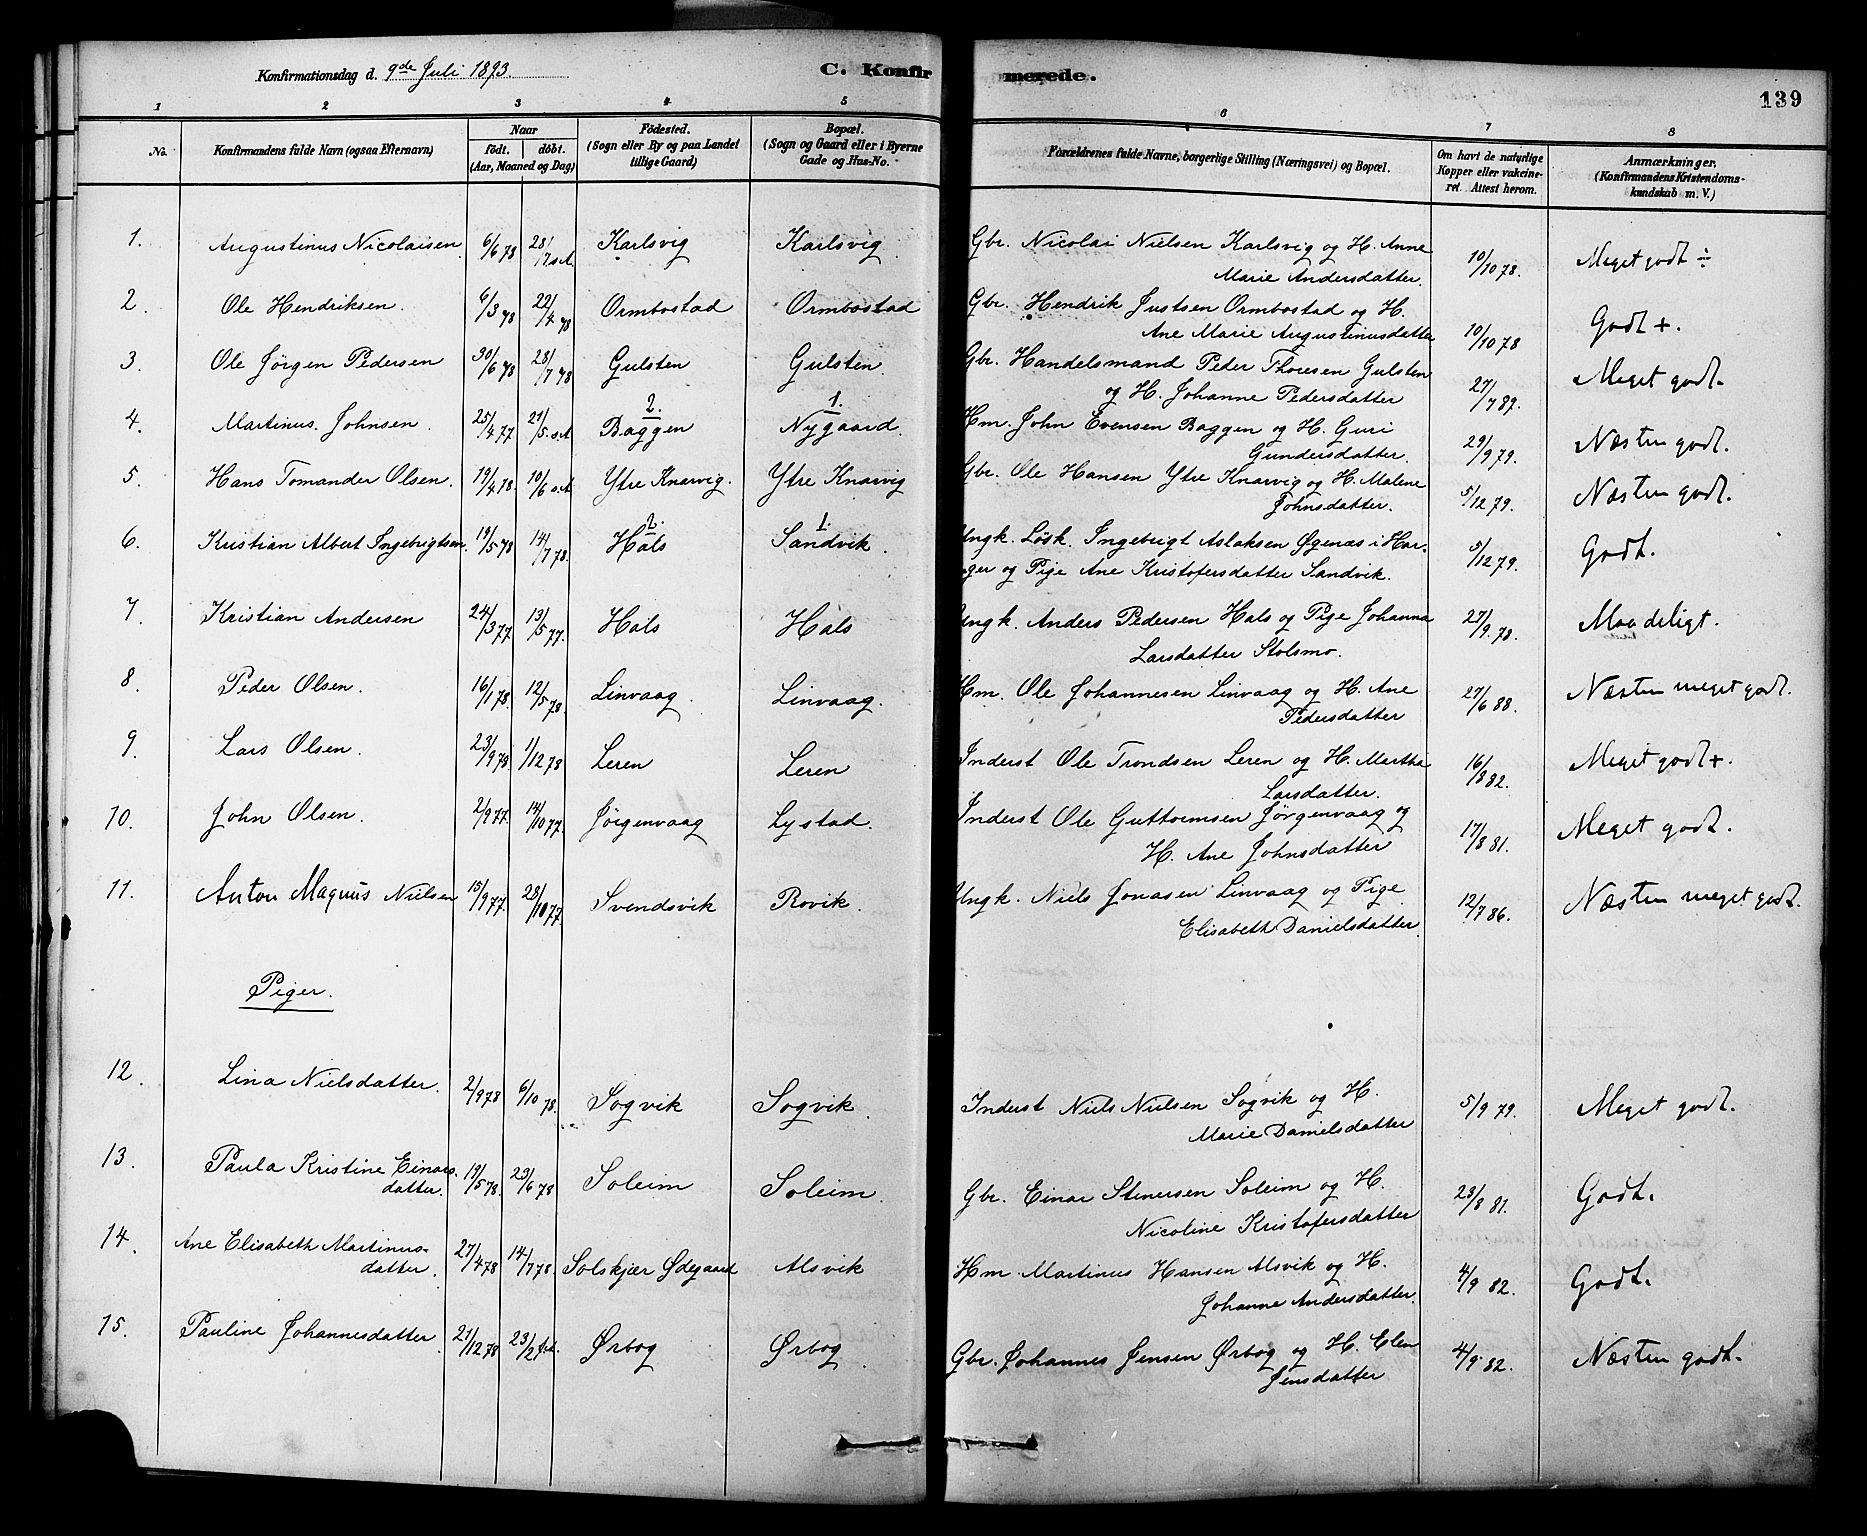 Konfirmationsdag d. 9de Juli 1893.
C. Konfirmerede.
139
1 2 3 4 5 6 7 8
No.
Konfirmandens fulde Navn (ogsaa Efternavn)
Naar
födt. döbt.
(Aar, Maaned og Dag)
Födested.
(Sogn eller By og paa Landet
tillige Gaard)
Bopæl.
(Sogn og Gaard eller i Byerne
Gade og Hus-No.
Forældrenes fulde Navne, borgerlige Stilling (Næringsvei) og Bopæl.
Om havt de naturlige
Kopper eller vakcine-
ret. Attest herom.
Anmærkninger.
(Konfirmandens Kristendoms-
kundskab m. V.)
1. Augustinus Nicolaisen 6/6 78 28/7 s.A. Karlsvig Karlsvig Gbr. Nicolai Nielsen Karlsvig og H. Anne 10/10 78. Meget godt ÷
Marie Andersdatter.
2. Ole Hendriksen. 6/3 78 22/4 78 Ormbostad Ormbostad Gbr. Hendrik Justsen Ormbostad og H. 10/10 78 Godt +.
Ane Marie Augustinusdatter
3. Ole Jörgen Pedersen 30/6 78 28/7 78 Gulsten Gulsten. Gbr. Handelsmand Peder Thoresen Gulsten 27/7 89. Meget godt.
og H. Johanne Pedersdatter
4. Martinus Johnsen. 25/4 77 21/5 s.A 2. Baggen 1. Nygaard. Hm. John Evensen Baggen og H. Guri 29/9 79. Næsten godt.
Gundersdatter.
5. Hans Tomander Olsen. 19/4 78. 10/6 s.A Ytre Knarvig. Ytre Knarvig Gbr. Ole Hansen Ytre Knarvig og H. Malene 5/12 79. Næsten godt.
Johnsdatter.
6. Kristian Albert Ingebrigtsen 19/5 78 14/7 78. 2. Hals 1. Sandvik. Ungk. Løsk. Ingebrigt Aslaksen Øgenæs i Har- 5/12 79. Godt.
ger og Pige Ane Kristofersdatter Sandvik.
7. Kristian Andersen 24/3 77 13/5 77. Hals Hals Ungk. Anders Pedersen Hals og Pige Johanna 27/9 78. Maadeligt.
Larsdatter Stolsmo.
8. Peder Olsen. 16/1 78. 12/5 78. Linvaag. Linvaag. Hm. Ole Johannesen Linvaag og H. Ane 27/6 88. Næsten meget godt.
Pedersdatter
9. Lars Olsen. 23/9 78. 1/12 78 Leren Leren Inderst Ole Trondsen Leren og H. Martha 16/8 82. Meget godt+.
Larsdatter.
10. John Olsen. 2/9 77. 14/10 77. Jørgenvaag Lystad. Inderst Ole Guttormsen Jørgenvaag og 17/8 81. Meget godt.
H. Ane Johnsdatter
11. Anton Magnus Nielsen 15/9 77. 28/10 77. Svendsvik Rovik. Ungk. Niels Jonasen Linvaag og Pige 12/7 86. Næsten meget godt.
Elisabeth Danielsdatter.
Piger.
12. Lina Nielsdatter. 2/9 78 6/10 78. Sogvik Sogvik. Inderst Niels Nielsen Sogvik og H. 5/9 79. Meget godt.
Marie Danielsdatter
13. Paula Kristine Einars- 19/5 78. 23/6 78 Soleim Soleim. Gbr. Einar Stenersen Soleim og H. 23/8 81. Godt.
datter. Nicoline Kristofersdatter
14. Ane Elisabeth Martinus- 27/4 78 14/7 78. Solskjær Ødegaard Alsvik Hm. Martinus Hansen Alsvik og H. 4/9 82. Godt.
datter. Johanne Andersdatter.
15. Pauline Johannesdatter 21/12 78 23/2 Ørbog Ørbog. Gbr. Johannes Jensen Ørbog og H. Elen 4/9 82. Næsten godt.
Jensdatter